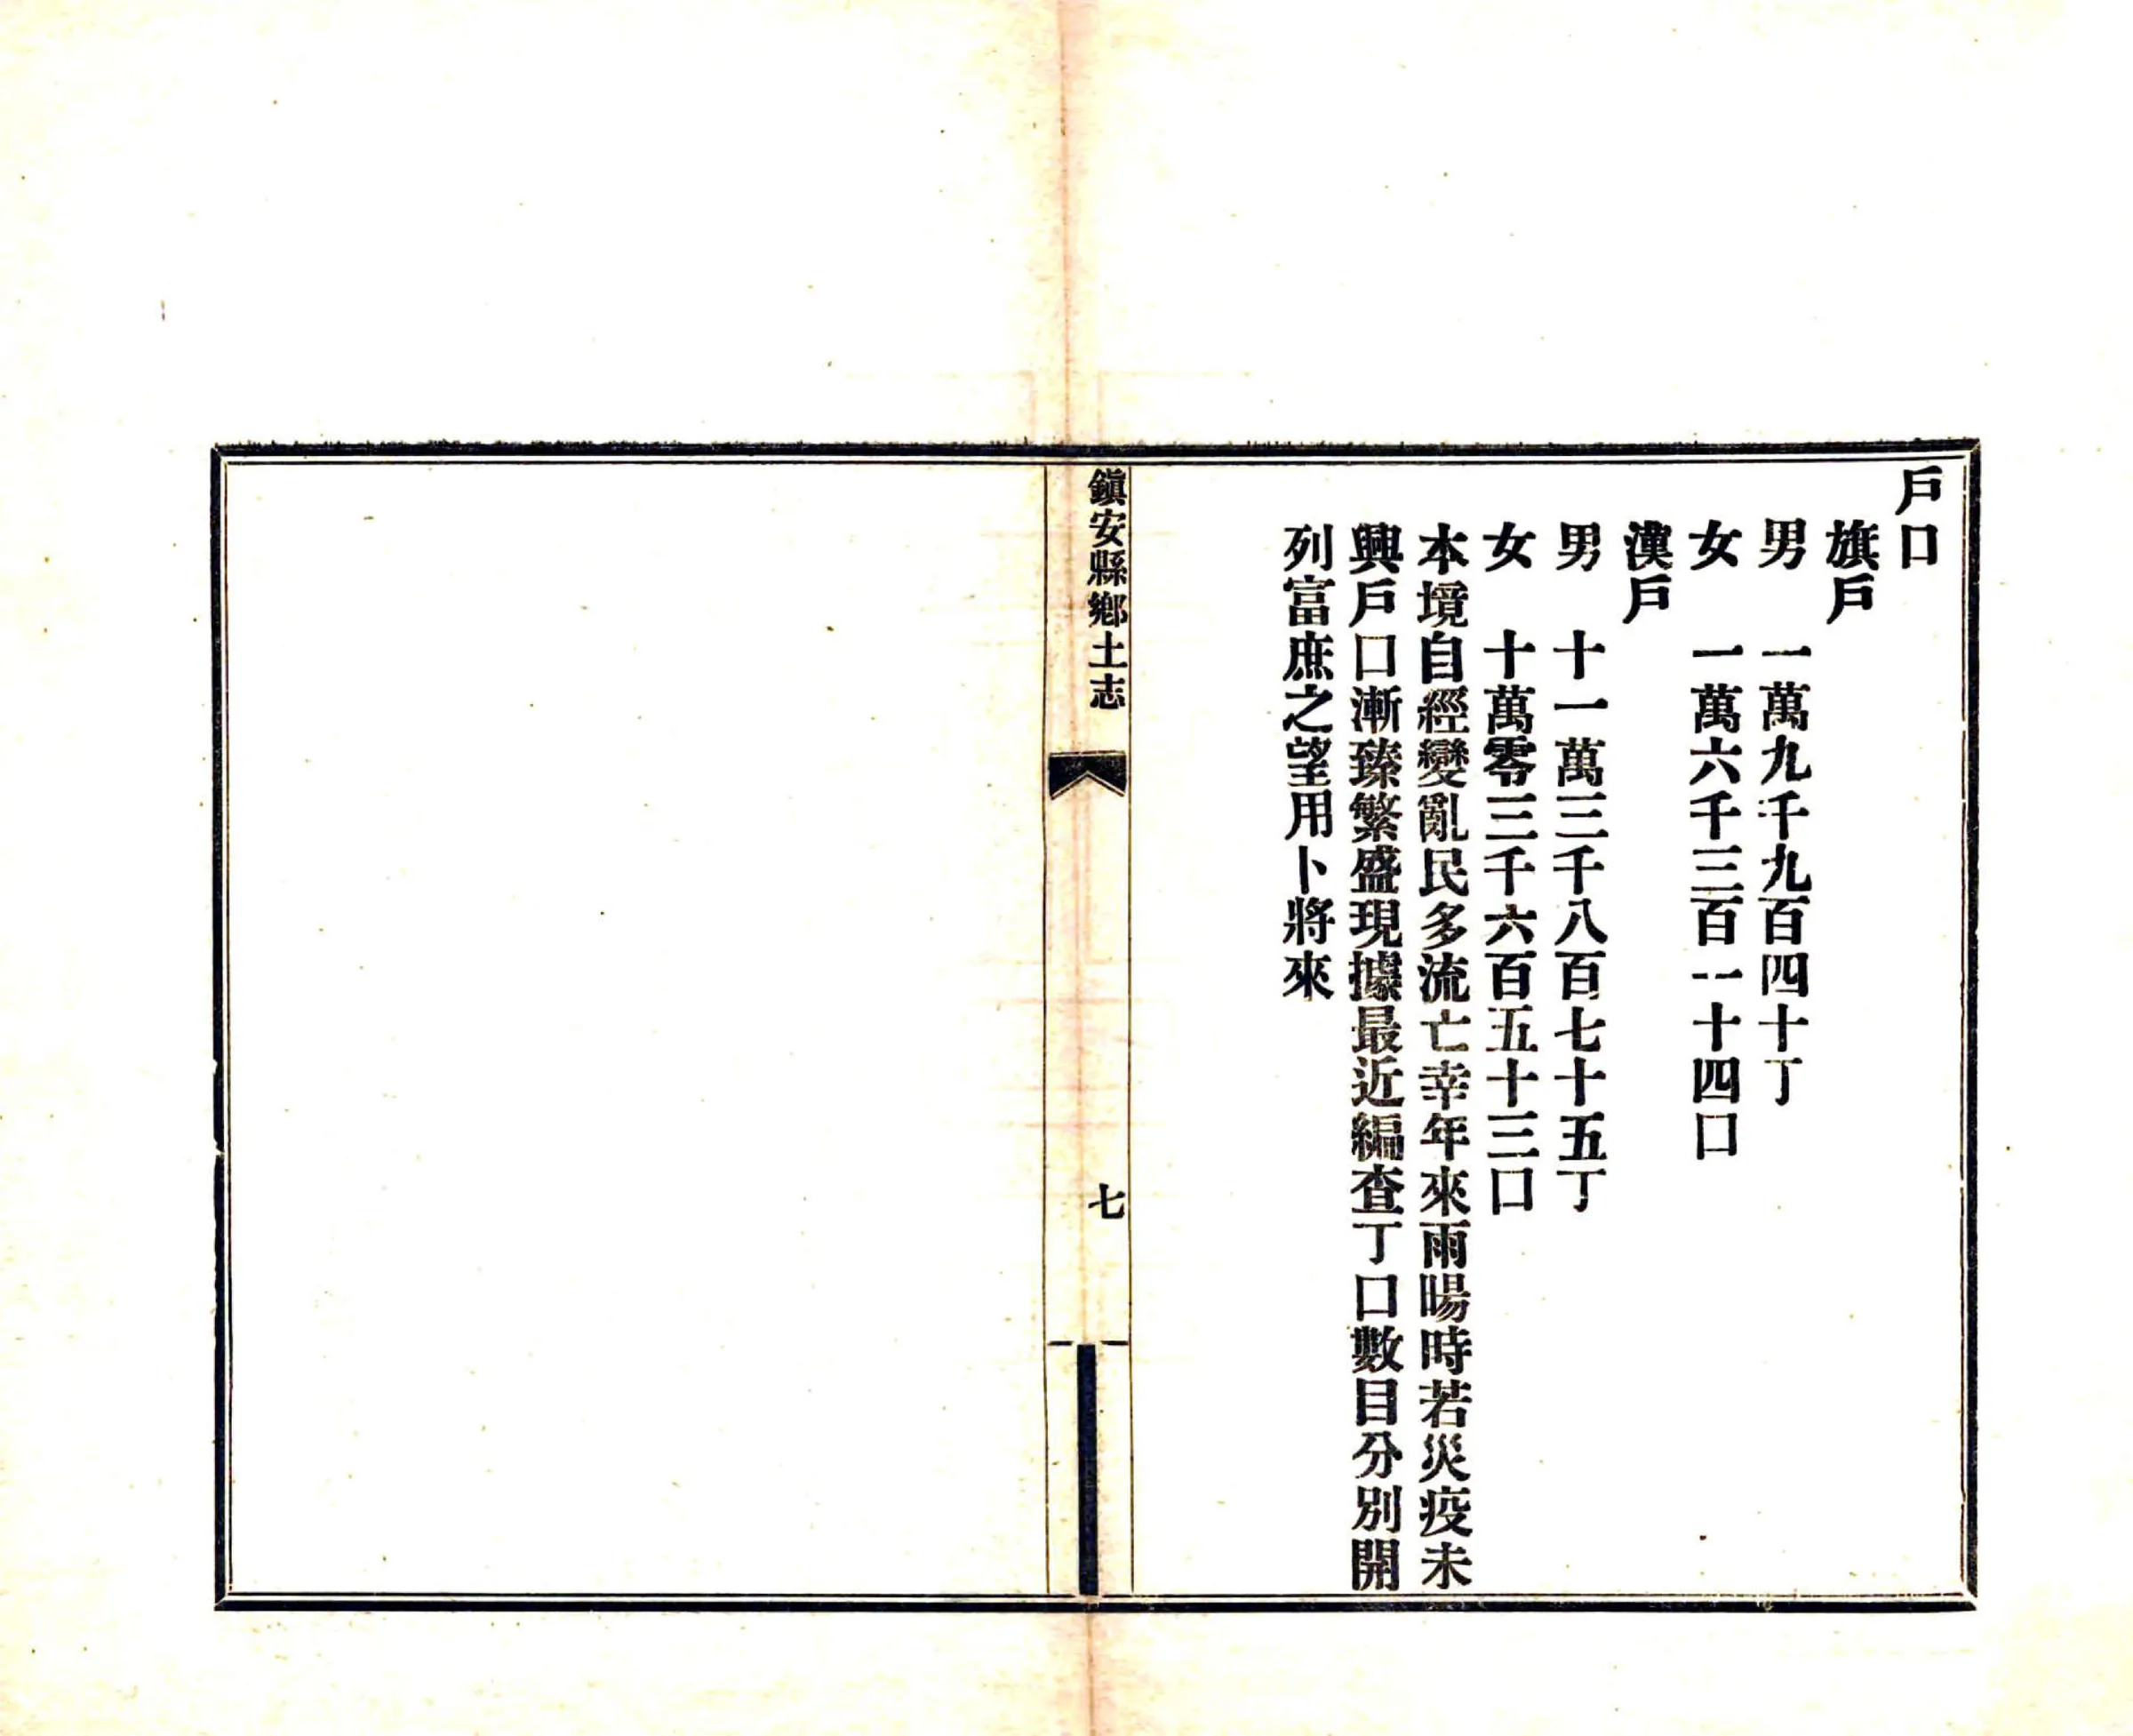 戶口
旗戶
男　一萬九千九百四十丁
女　一萬六千三百一十四口
漢戶
男　十一萬三千八百七十五丁
女　十萬零三千六百五十三口
本境自經變亂民多流亡幸年來雨暘時若災疫未
興戶口漸臻繁盛現據最近編查丁口數目分別開
列富庶之望用卜將來
鎭安縣鄉土志
七